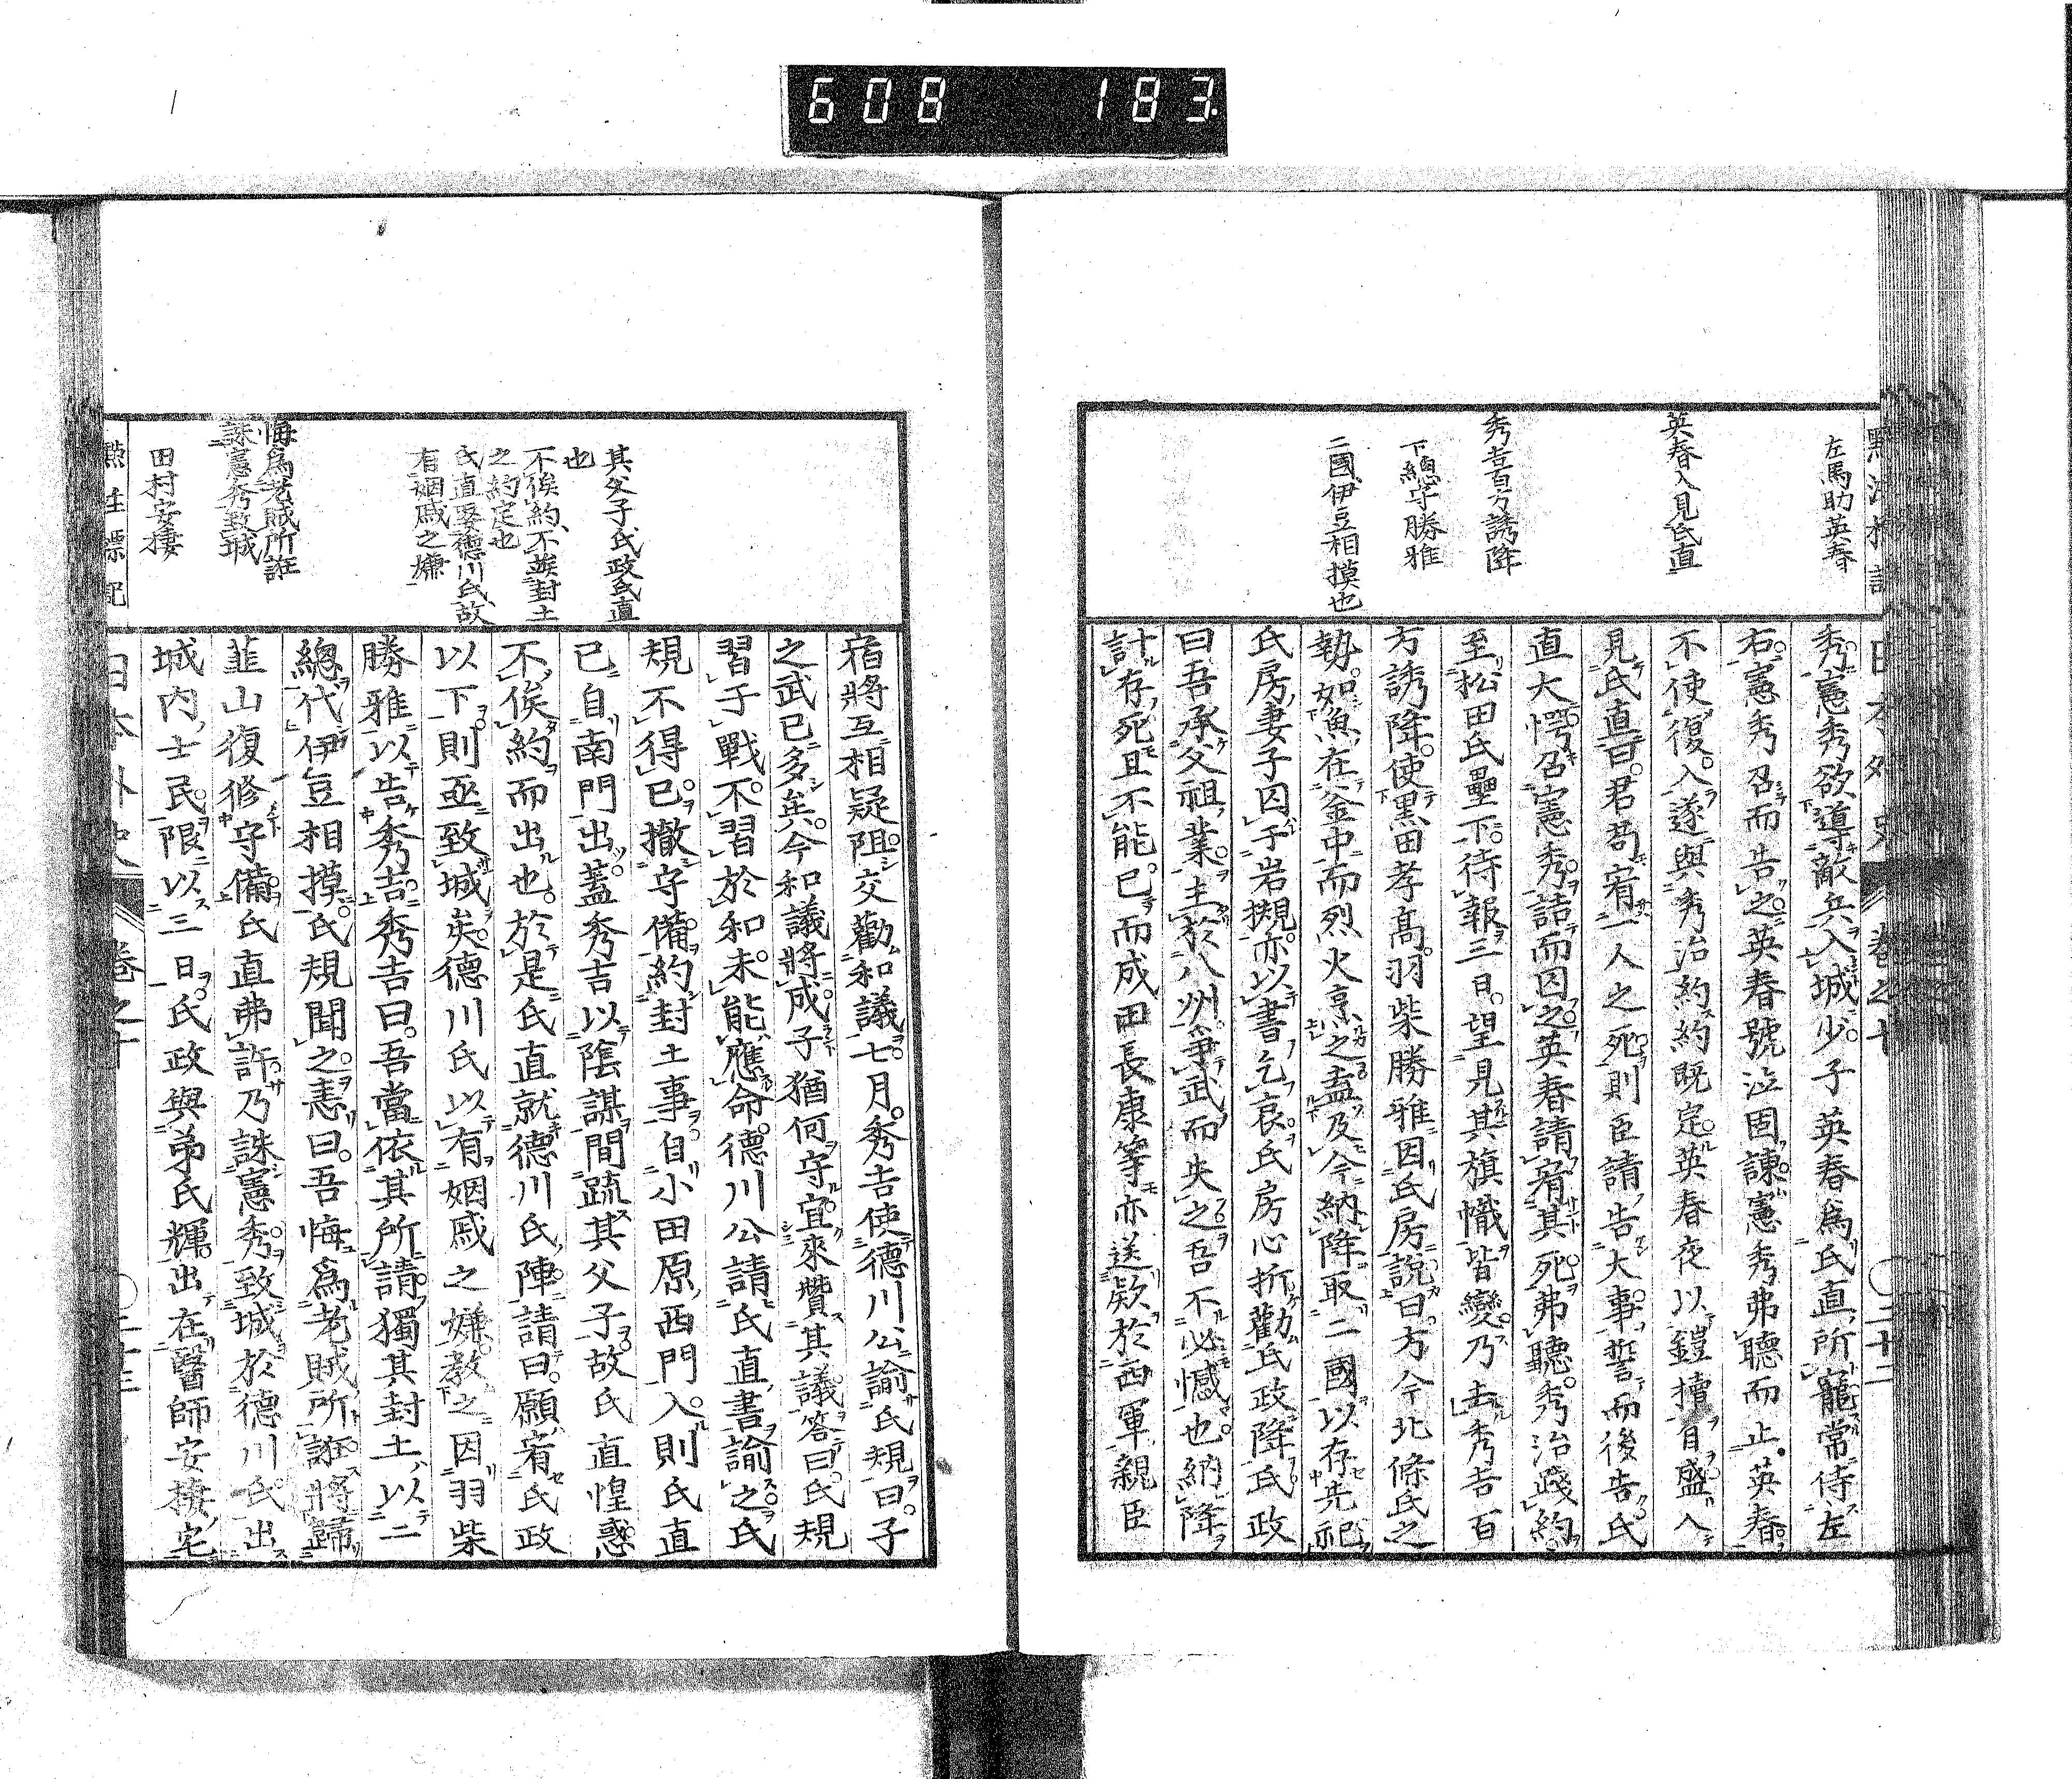 608 183
左馬助英春
英春入見氏直
秀吉百方誘降
下總守勝雅
二國伊豆相摸也
秀憲秀欲導敵兵入城少子英春爲氏直所寵常侍左
右憲秀召而告之英春號泣固諫憲秀弗聽而止英春
不使復入遂與秀治約約既定英春夜以鎧櫝自盛入
見氏直曰君苟宥一人之死則臣請告大事誓而後告氏
直大愕召憲秀詰而囚之英春請宥其死弗聽秀治踐約
至松田氏壘下待報三日望見其旗幟皆變乃去秀吉百
方誘降使黒田孝高羽柴勝雅因氏房說曰方今北條氏之
勢如魚在釜中而烈火烹之盍及今納降取二國以存先祀
氏房妻子囚于岩槻亦以書乞哀氏房心折勸氏政降氏政
曰吾承父祖業主於八州爭武而失之吾不必憾也納降
計存死且不能已而成田長康等亦送欵於西軍親臣
其父子氏政氏直
也
不俟約不竢封土
之約定也
氏直娶德川氏故
有姻戚之嫌
悔爲老賊所誑
誅憲秀致城
田村安棲
宿將互相疑阻交勸和議七月秀吉使德川公諭氏規曰子
之武已多矣今和議將成子猶何守宜來贊其議答曰氏規
習于戰不習於和未能應命德川公請氏直書諭之氏
規不得已撤守備約封土事自小田原西門入則氏直
已自南門出蓋秀吉以陰謀間疏其父子故氏直惶惑
不俟約而出也於是氏直就德川氏陣請曰願宥氏政
以下則亟致城矣德川氏以有姻戚之嫌敎之因羽柴
勝雅以告秀吉秀吉曰吾當依其所請獨其封土以二
總代伊豆相摸氏規聞之恚曰吾悔爲老賊所誑將歸
韮山復修守備氏直弗許乃誅憲秀致城於德川氏出
城内士民限以三日氏政與弟氏輝出在醫師安棲宅
日本外史 卷之十